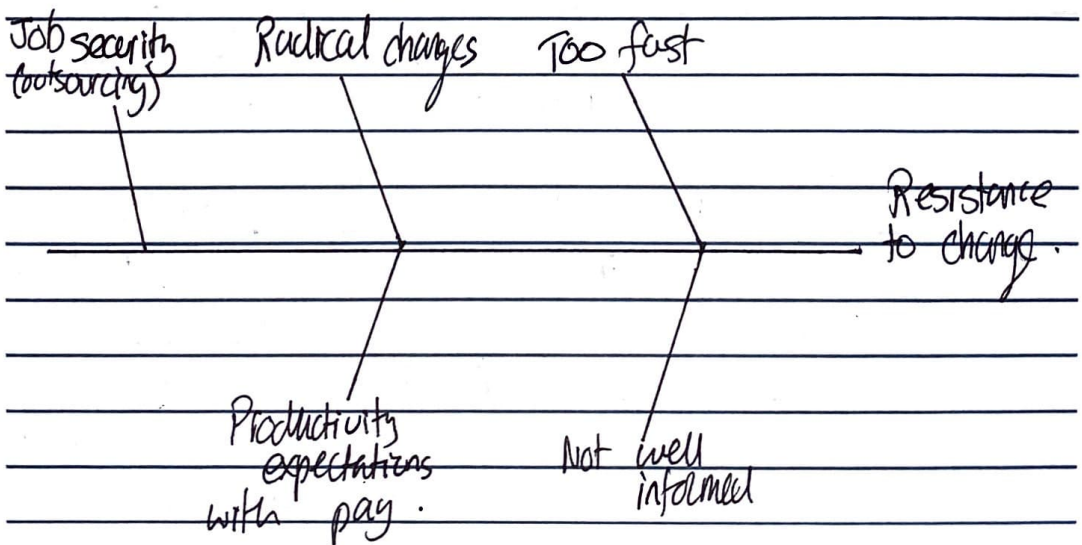 Job security
(outsourcing)
Radical changes
Too fast
Resistance
to change.
Productivity
expectations
with pay.
Not well
informed